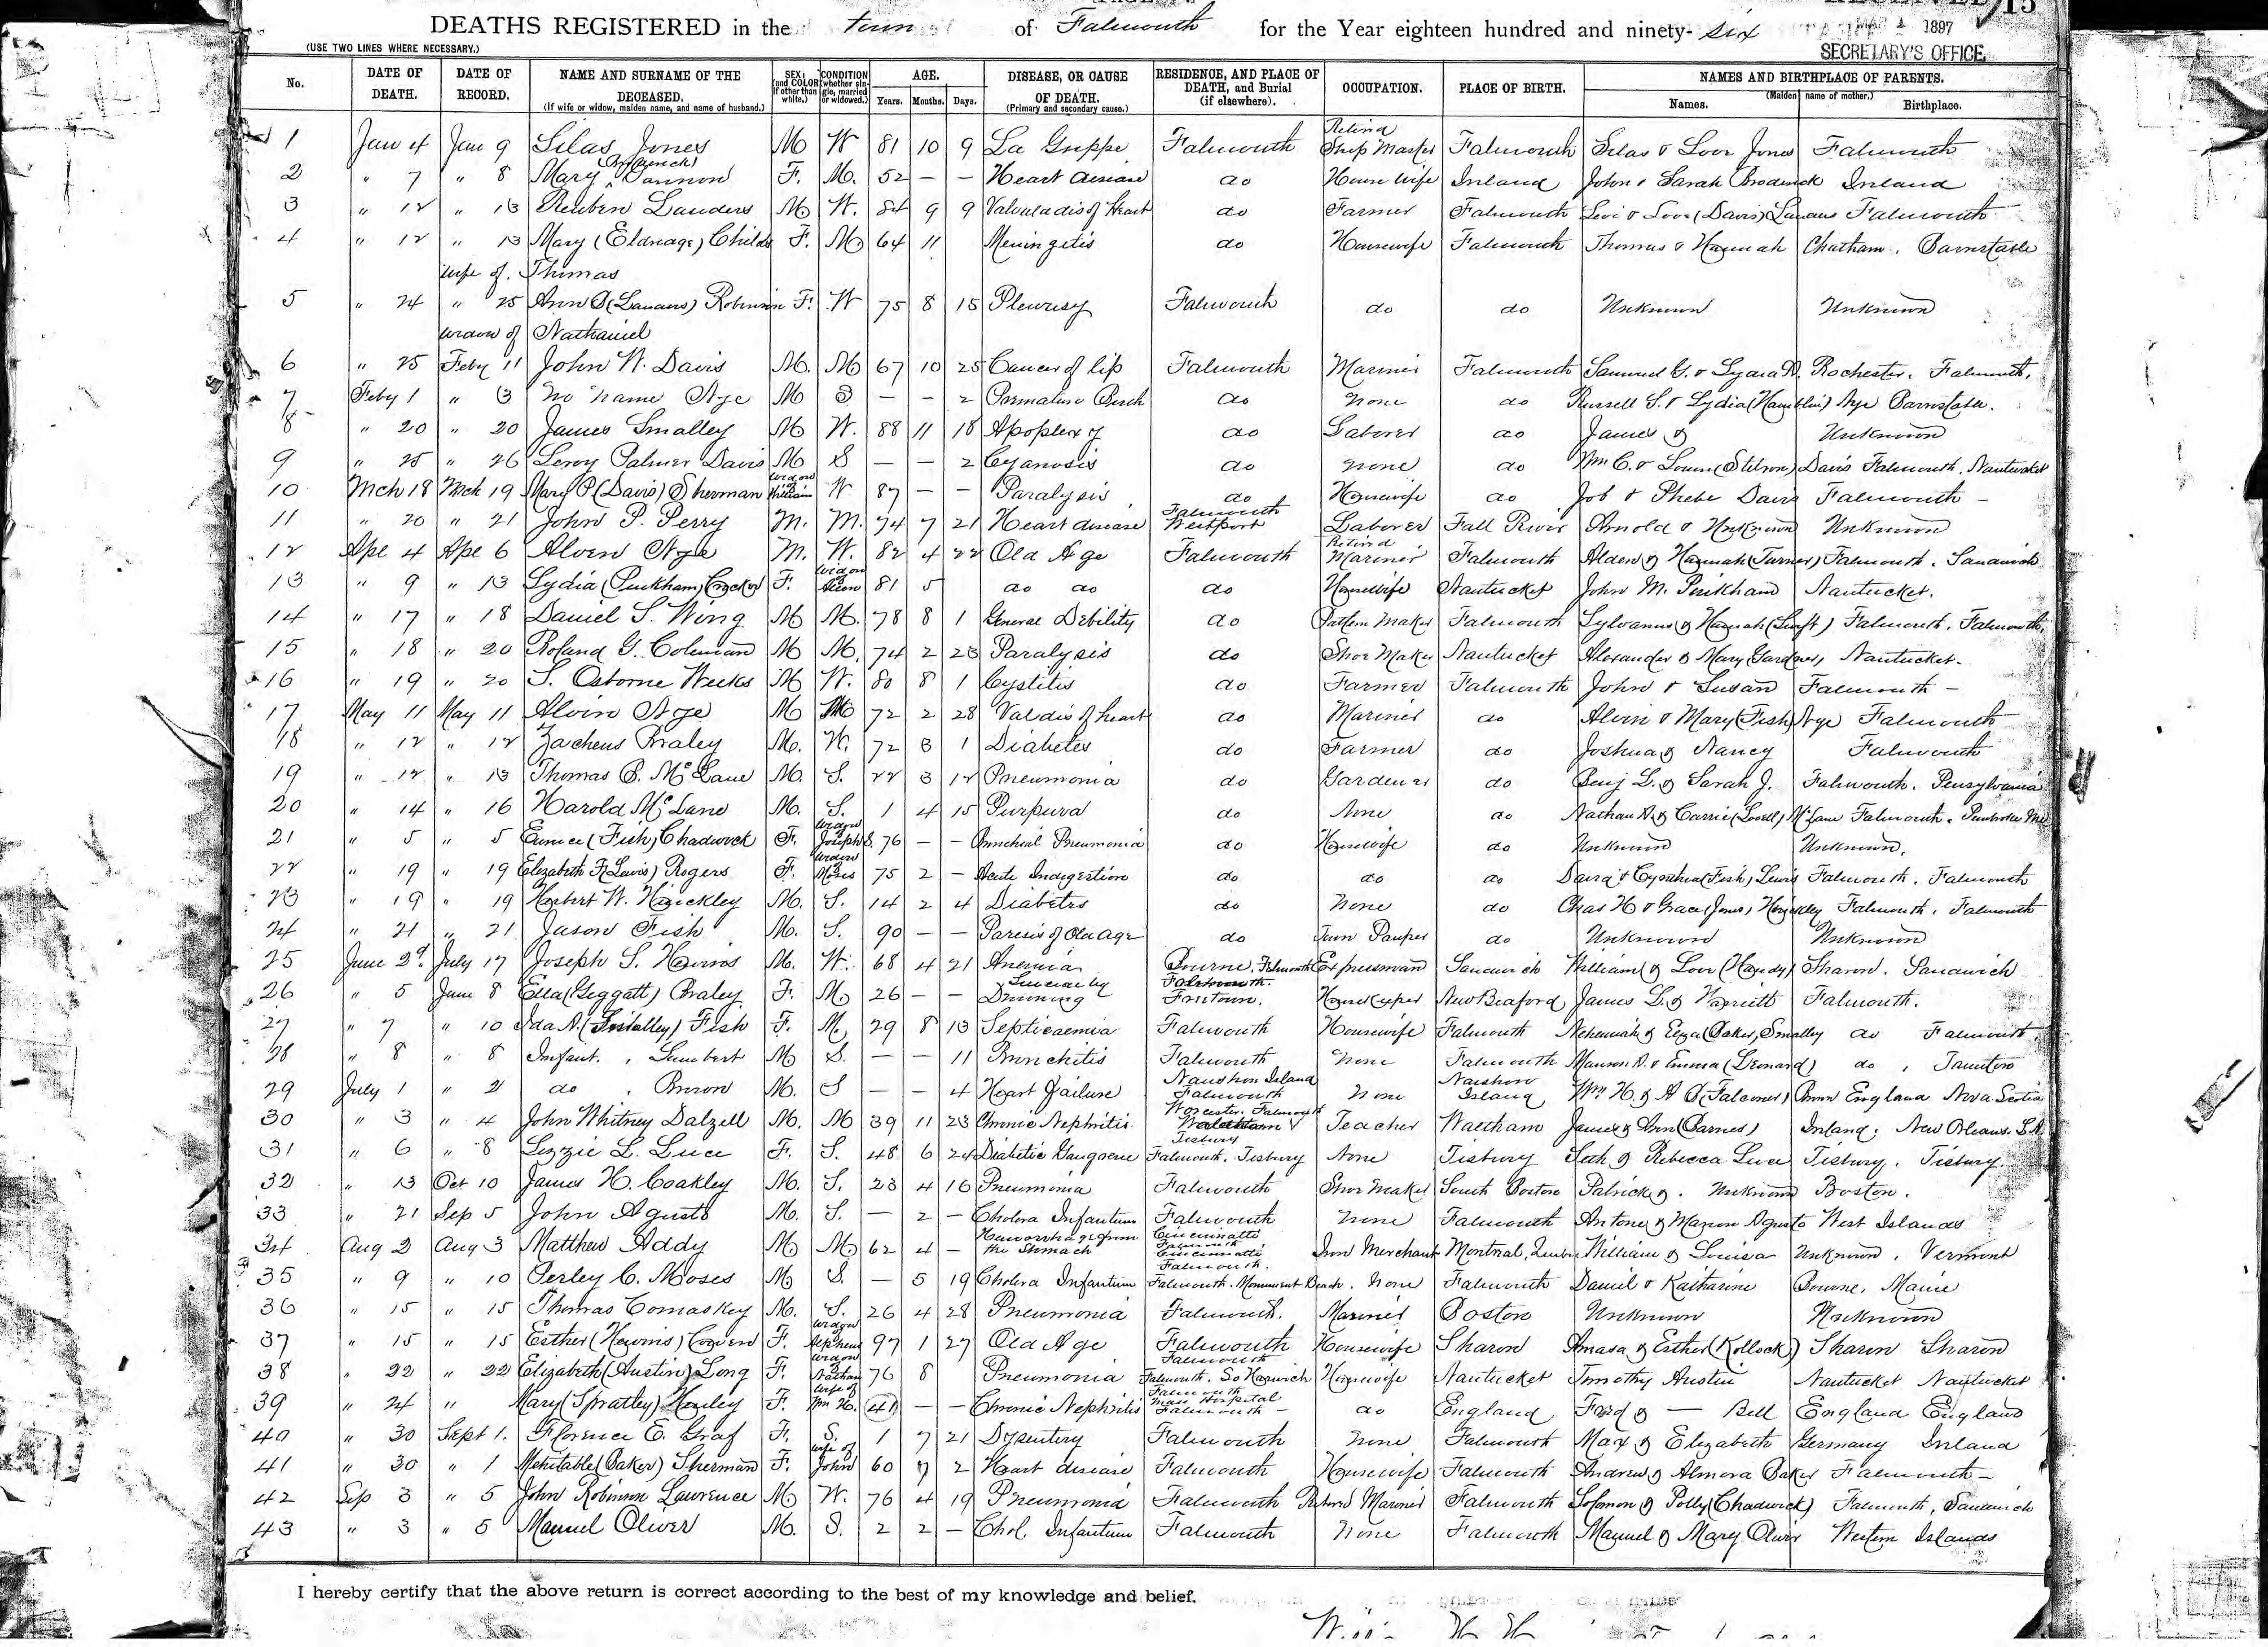 15
DEATHS REGISTERED in the town of Falmouth for the Year eighteen hundred and ninety- six
1897
(USE TWO LINES WHERE NECESSARY.)
SECRETARY'S OFFICE.
No. DATE OF DEATH. DATE OF RECORD. NAME AND SURNAME OF THE DECEASED. (If wife or widow, maiden name, and name of husband.) SEX, (and COLOR if other than white.) CONDITION (whether single, married or widowed.) AGE. Years. Months. Days. DISEASE, OR CAUSE OF DEATH. (Primary and secondary cause.) RESIDENCE, AND PLACE OF DEATH, and Burial (if elsewhere). OCCUPATION. PLACE OF BIRTH. NAMES AND BIRTHPLACE OF PARENTS. (Maiden name of mother.) Names. Birthplace.
1 Jan 4 Jan 9 Silas Jones M W 81 10 9 La Grippe Falmouth Retired Ship Master Falmouth Silas & Love Jones Falmouth
2 " 7 " 8 Mary (Broderick) Gannon F. M. 52 – – Heart disease do House wife Ireland John & Sarah Broderick Ireland
3 " 12 " 13 Reuben Landers M W. 84 9 9 Valvula dis of Heart do Farmer Falmouth Levi & Love (Davis) Landers Falmouth
4 " 12 " 13 Mary (Eldridge) Childs F. M 64 11 Meningitis do Housewife Falmouth Thomas & Hannah Chatham, Barnstable
wife of Thomas
5 " 24 " 25 Ann S (Landers) Robinson F. W 75 8 15 Pleurisy Falmouth do do Unknown Unknown
widow of Nathaniel
6 " 25 Feby 11 John W. Davis M. M 67 10 25 Cancer of lip Falmouth Mariner Falmouth Samuel G. & Lydia Rochester, Falmouth,
7 Feby 1 " 13 No name Nye M S – – 2 Permature Birth do none do Russell S. & Lydia (Hamblin) Nye Barnstable.
8 " 20 " 20 James Smalley M W. 88 11 18 Apoplexy do Laborer do James & Unknown
9 " 25 " 26 Leroy Palmer Davis M S – – 2 Cyanosis do none do Wm C. & Louisa (Stetson) Davis Falmouth, Nantucket
10 Mch 18 Mch 19 Mary P (Davis) Sherman widow of William W 87 – – Paralysis do Housewife do Job & Phebe Davis Falmouth –
11 " 20 " 21 John P. Perry M. M. 74 7 21 Heart disease Falmouth Westport Laborer Fall River Arnold & Unknown Unknown
12 Apl 4 Apl 6 Alven Nye M. W. 82 4 22 Old Age Falmouth Retired Mariner Falmouth Alden & Hannah (Turner) Falmouth, Sandwich
13 " 9 " 13 Lydia (Pinkham) Crocker F. widow of 81 5 do do do Housewife Nantucket John M. Pinkham Nantucket.
14 " 17 " 18 Daniel S. Wing M M. 78 8 1 General Debility do Pattern Maker Falmouth Sylvanus & Hannah (Swift) Falmouth, Falmouth,
15 " 18 " 20 Roland G. Coleman M M. 74 2 23 Paralysis do Shoe Maker Nantucket Alexander & Mary (Gardner) Nantucket.
16 " 19 " 20 S. Osborne Weeks M W. 80 8 1 Cystitis do Farmer Falmouth John & Susan Falmouth –
17 May 11 May 11 Alvin Nye M M 72 2 28 Val dis of heart do Mariner do Alvin & Mary (Fish) Nye Falmouth
18 " 12 " 12 Zacheus Braley M. W. 72 3 1 Diabetes do Farmer do Joshua & Nancy Falmouth
19 " 12 " 13 Thomas B. McLane M. S. 22 3 12 Pneumonia do Gardener do Benj L. & Sarah J. Falmouth, Pensylvania
20 " 14 " 16 Harold McLane M. S. 1 4 15 Purpura do None do Nathan & Carrie (Lovell) McLane Falmouth, Pembroke Me
21 " 5 " 5 Eunice (Fish) Chadwick F. widow Joseph S. 76 – – Bronchial Pneumonia do Housewife do Unknown Unknown.
22 " 19 " 19 Elizabeth F. (Lewis) Rogers F. widow Moses 75 2 – Acute Indigestion do do do David & Cynthia (Fish) Lewis Falmouth, Falmouth
23 " 19 " 19 Herbert W. Hinckley M. S. 14 2 4 Diabetes do None do Chas H & Grace (Jones) Hinckley Falmouth, Falmouth
24 " 21 " 21 Jason Fish M. S. 90 – – Paresis of Old Age do Town Pauper do Unknown Unknown
25 June 2d July 17 Joseph S. Hewins M. W. 68 4 21 Anemia Bourne, Falmouth Expressman Sandwich William & Love (Handy) Sharon, Sandwich
26 " 5 June 8 Ella (Leggatt) Braley F. M 26 – – Suicide by Drowning Falmouth. Freetown. Housekeeper New Bedford James L. & Harriett Falmouth.
27 " 7 " 10 Ida A. (Smalley) Fish F. M 29 8 13 Septicaemia Falmouth Housewife Falmouth Nehemiah & Eliza (Baker) Smalley do Falmouth,
28 " 8 " 8 Infant. " Lumbert M S. – – 11 Bronchitis Falmouth none Falmouth Manson & Emma (Leonard) do , Taunton
29 July 1 " 2 do " Brown M. S – – 4 Heart Failure Naushon Island Falmouth None Naushon Island Wm H. & A (Falconer) Brown England Nova Scotia
30 " 3 " 4 John Whitney Dalzell M. M 39 11 23 Chronic Nephritis Worcester. Falmouth Teacher Waltham James & Ann (Barnes) Ireland, New Orleans. LA.
31 " 6 " 8 Lizzie L. Luce F. S. 48 6 24 Diabetic Gangrene Tisbury Falmouth. Tisbury None Tisbury Seth & Rebecca Luce Tisbury, Tisbury.
32 " 13 Oct 10 James H. Coakley M. S. 23 4 16 Pneumonia Falmouth Shoe Maker South Boston Patrick & . Unknown Boston.
33 " 21 Sep 5 John Agusto M. S. – 2 – Cholera Infantum Falmouth none Falmouth Antone & Marion Agusto West Islands
34 Aug 2 Aug 3 Matthew Addy M M 62 4 – Hemorrhage from the stomach Cincinnatti Falmouth Cincinnatti Iron Merchant Montreal, Quebec William & Louisa Unknown, Vermont
35 " 9 " 10 Perley C. Moses M S. – 5 19 Cholera Infantum Falmouth. Falmouth. Monument Beach. None Falmouth Daniel & Katharine Bourne, Maine
36 " 15 " 15 Thomas Comaskey M. S. 26 4 28 Pneumonia Falmouth. Mariner Boston Unknown Unknown
37 " 15 " 15 Esther (Hewins) F. widow Stephen 97 1 27 Old Age Falmouth Housewife Sharon Amasa & Esther (Kollock) Sharon Sharon
38 " 22 " 22 Elizabeth (Austin) Long F. widow of Nathan 76 8 Pneumonia Falmouth Falmouth. So Harwich Housewife Nantucket Timothy Austin Nantucket Nantucket
39 " 24 " Mary (Spratley) Henley F. wife of Wm H. 41 – – Chronic Nephritis Falmouth Mass Hospital Falmouth – do England Fred & – Bell England England
40 " 30 Sept 1. Florence E. Graf F. S. 1 7 21 Dysentery Falmouth none Falmouth Max & Elizabeth Germany Ireland
41 " 30 " 1 Mehitable (Baker) Sherman F. wife of John 60 7 2 Heart disease Falmouth Housewife Falmouth Andrew & Almora Baker Falmouth –
42 Sep 3 " 5 John Robinson Lawrence M W. 76 4 19 Pneumonia Falmouth Retired Mariner Falmouth Solomon & Polly (Chadwick) Falmouth, Sandwich
43 " 3 " 5 Manuel Oliver M. S. 2 2 – Chol. Infantum Falmouth None Falmouth Manuel & Mary Oliver Western Islands
I hereby certify that the above return is correct according to the best of my knowledge and belief.